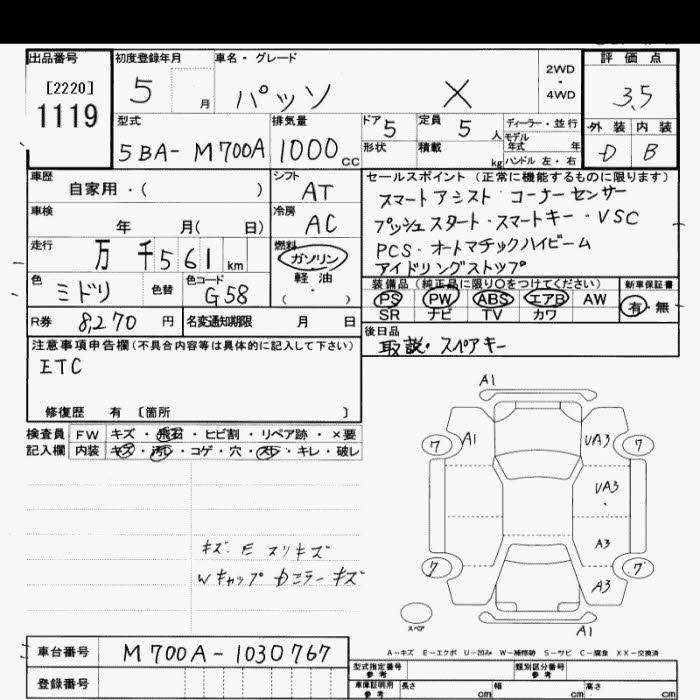 出品番号 初度登録年月 車名・グレード 評価点
[2220] 5 月 パッソ X 2WD ・ 4WD 3.5
1119
型式 排気量 ドア 5 定員 5 人 ディーラー・並行 外装 内装
モデル年式 年
5BA-M700A 1000 cc 形状 積載 kg ハンドル 左・右 D B
車歴 シフト セールスポイント (正常に機能するものに限ります)
自家用・( ) AT スマートアシスト・コーナーセンサー
車検 冷房 プッシュスタート・スマートキー・VSC
年 月( 日) AC PCS・オートマチックハイビーム
走行 万 千 561 km 燃料 ガソリン アイドリングストップ
軽油
・( )
色 色替 色コード 装備品 (純正品に限り○をつけてください) 新車保証書
ミドリ G58 PS PW ABS エアB AW 有・無
SR ナビ TV カワ
R券 8,270 円 名変通知期限 月 日 後日品
取説・スペアキー
注意事項申告欄(不具合内容等は具体的に記入して下さい)
ETC
修復歴 有 〔箇所 〕
検査員 FW キズ・飛石・ヒビ割・リペア跡・×要
記入欄 内装 キズ・汚レ・コゲ・穴・スレ・キレ・破レ
A1
7 A1 UA3 7
UA3
A3
7 A3 7
スペア A1
キズ E スリキズ
Wキャップ ミラー キズ
A-キズ E-エクボ U-凹み W-補修跡 S-サビ C-腐食 XX-交換済
車台番号 M700A-1030767
型式指定番号 参考 類別区分番号 参考
登録番号 車庫証明用 参考 長さ cm 幅 cm 高さ cm